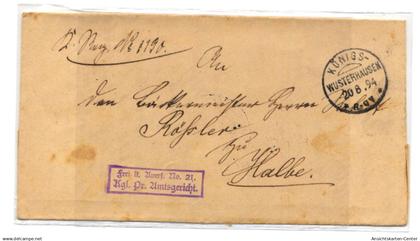 No 1190.
An
den Bäckermeister Herrn
Rößler
zu
Halbe.
KÖNIGS-
WUSTERHAUSEN
20 8. 94
Frei lt. Avers. No. 21.
Kgl. Pr. Amtsgericht.
Ansichtskarten-Center